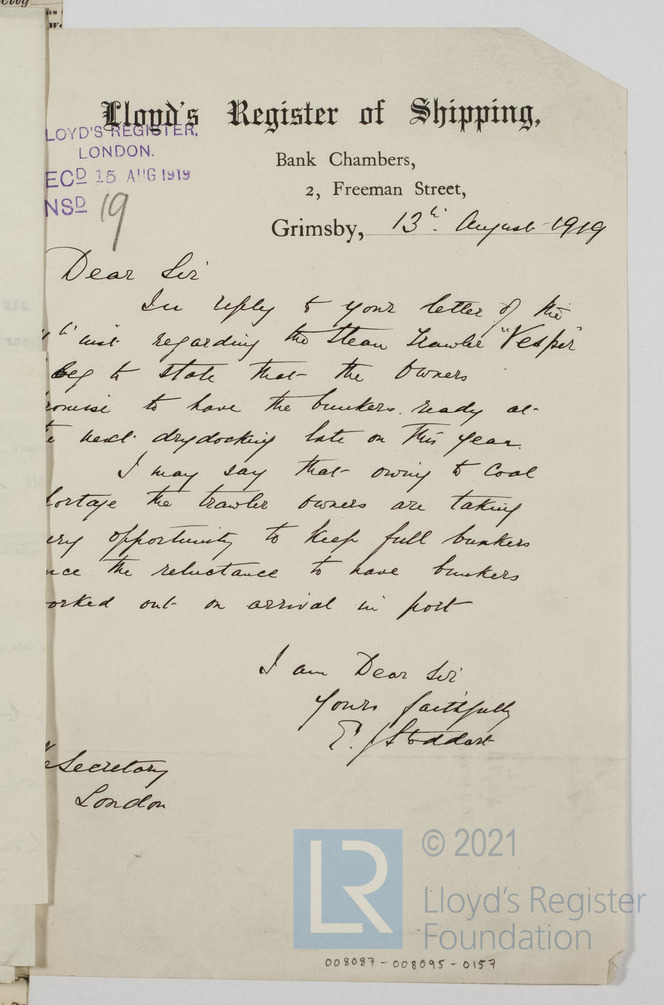 Lloyd's Register of Shipping,
LOYD'S REGISTER,
LONDON.
ECD 15 AUG 1919
NSD 19
Bank Chambers,
2, Freeman Street,
Grimsby, 13th August 1919
Dear Sir
In reply to your letter of the
inst regarding the Steam Trawler "Vesper"
beg to state that the Owners
romise to have the bunkers ready at
e next drydocking late on this year.
I may say that owing to Coal
hortage the trawler owners are taking
ery opportunity to keep full bunkers
nce the reluctance to have bunkers
orked out on arrival in port
I am Dear Sir
Yours faithfully
E. J Stoddart
Secretary
London
LR
© 2021
Lloyd's Register
Foundation
008087-008095-0157